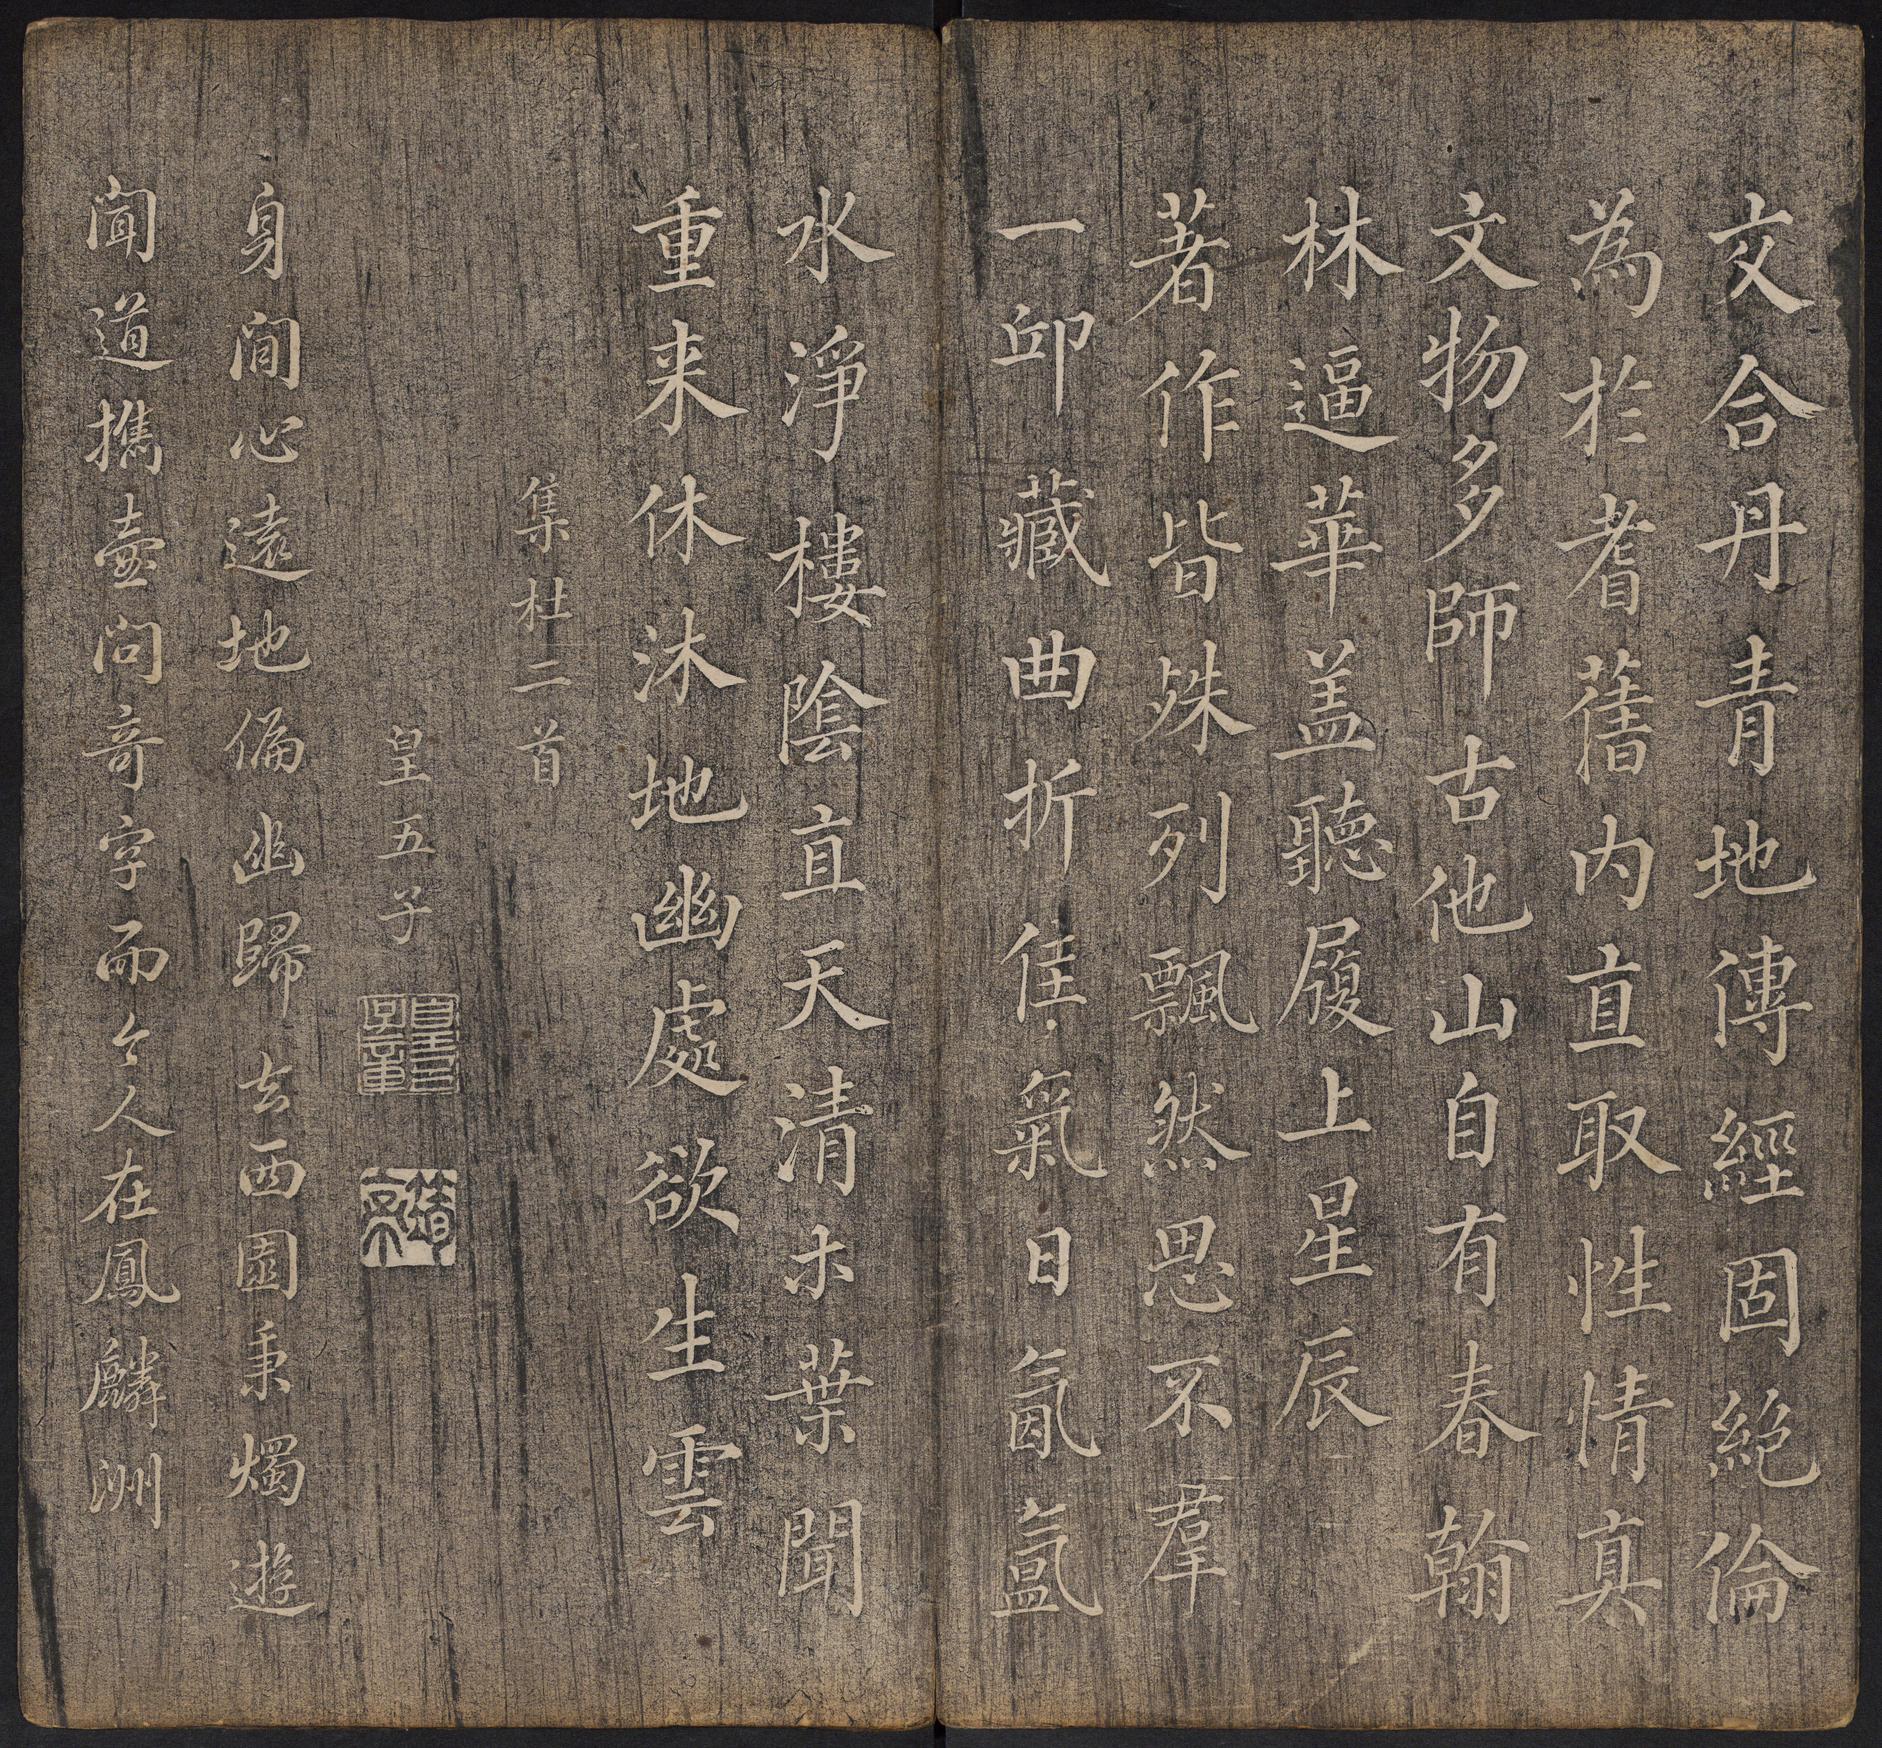 文合丹青地傳經固絕倫
為於耆舊内直取性情真
文物多師古他山自有春翰
林逼華盖聽履上星辰
著作皆殊列飄然思不羣
一邱藏曲折佳氣日氤氳
水淨樓陰直天清木葉聞
重来休沐地幽處欲生雲
集杜二首
皇五子
身閒心遠地偏幽歸去西園秉燭遊
聞道携壷問奇字而今人在鳳麟洲